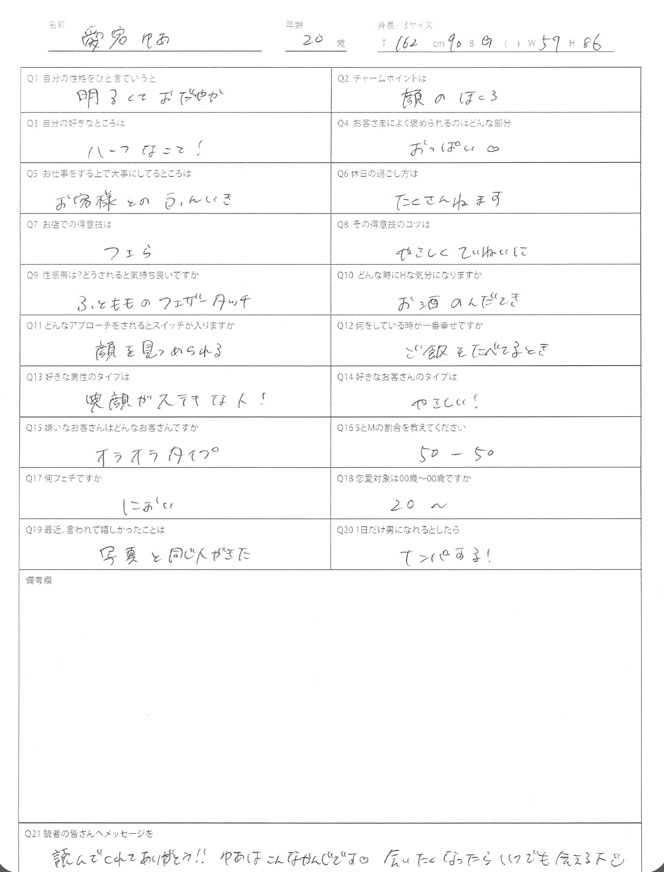 名前 愛宕ゆあ 年齢 20 歳 身長/3サイズ T 162 cm 90 B G ( ) W 57 H 86
Q1 自分の性格をひと言でいうと
明るくておだやか
Q2 チャームポイントは
顔のほくろ
Q3 自分の好きなところは
ハーフなこと!
Q4 お客さまによく褒められるのはどんな部分
おっぱい♡
Q5 お仕事をする上で大事にしてるところは
お客様とのふんいき
Q6 休日の過ごし方は
たくさんねます
Q7 お店での得意技は
フェら
Q8 その得意技のコツは
やさしくていねいに
Q9 性感帯は?どうされると気持ち良いですか
ふとももの フェザータッチ
Q10 どんな時にHな気分になりますか
お酒のんだとき
Q11 どんなアプローチをされるとスイッチが入りますか
顔を見つめられる
Q12 何をしている時が一番幸せですか
ご飯をたべてるとき
Q13 好きな男性のタイプは
笑顔がステキな人!
Q14 好きなお客さんのタイプは
やさしい!
Q15 嫌いなお客さんはどんなお客さんですか
オラオラタイプ
Q16 SとMの割合を教えてください
50 - 50
Q17 何フェチですか
におい
Q18 恋愛対象は00歳~00歳ですか
20 ~
Q19 最近、言われて嬉しかったことは
写真と同じ人がきた
Q20 1日だけ男になれるとしたら
ナンパする!
備考欄
Q21 読者の皆さんへメッセージを
読んでくれてありがとう!! ゆあはこんなかんじです♡ 会いたくなったらいつでも会えるよ